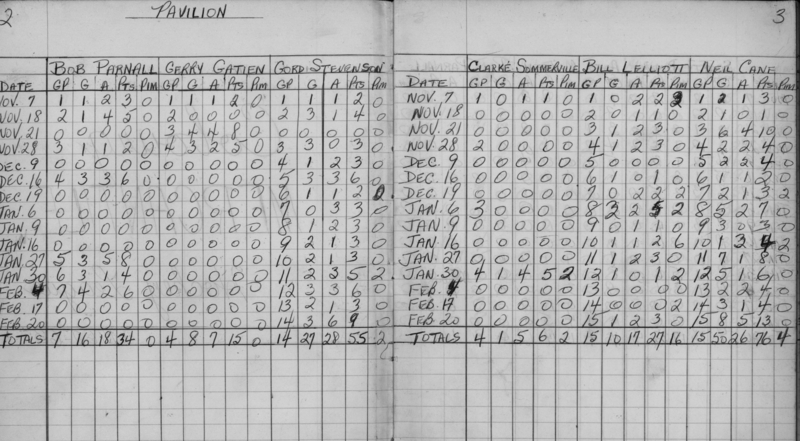 2
PAVILION
BOB PARNALL GERRY GATIEN GORD STEVENSON
DATE GP G A Pts Pim GP G A Pts Pim GP G A Pts Pim
NOV. 7 1 1 2 3 0 1 1 1 2 0 1 1 1 2 0
NOV. 18 2 1 4 5 0 2 0 0 0 0 2 3 1 4 0
NOV. 21 0 0 0 0 0 3 4 4 8 0 0 0 0 0 0
NOV 28 3 1 1 2 0 4 3 2 5 0 3 3 0 3 0
DEC. 9 0 0 0 0 0 0 0 0 0 0 4 1 2 3 0
DEC. 16 4 3 3 6 0 0 0 0 0 0 5 3 3 6 0
DEC. 19 0 0 0 0 0 0 0 0 0 0 6 1 1 2 0
JAN. 6 0 0 0 0 0 0 0 0 0 0 7 0 3 3 0
JAN. 9 0 0 0 0 0 0 0 0 0 0 8 1 2 3 0
JAN. 16 0 0 0 0 0 0 0 0 0 0 9 2 1 3 0
JAN. 27 5 3 5 8 0 0 0 0 0 0 10 2 1 3 0
JAN. 30 6 3 1 4 0 0 0 0 0 0 11 2 3 5 2
FEB. 4 7 4 2 6 0 0 0 0 0 0 12 3 3 6 0
FEB. 17 0 0 0 0 0 0 0 0 0 0 13 2 1 3 0
FEB. 20 0 0 0 0 0 0 0 0 0 0 14 3 6 9 0
TOTALS 7 16 18 34 0 4 8 7 15 0 14 27 28 55 2
3
CLARKE SOMMERVILLE BILL LELLIOTT NEIL CANE
DATE GP G A Pts Pim GP G A Pts Pim GP G A Pts Pim
NOV. 7 1 0 1 1 0 1 0 2 2 2 1 2 1 3 0
NOV. 18 2 0 0 0 0 2 0 1 1 0 2 1 0 1 0
NOV. 21 0 0 0 0 0 3 1 2 3 0 3 6 4 10 0
NOV. 28 2 0 0 0 0 4 1 2 3 0 4 2 2 4 0
DEC. 9 0 0 0 0 0 5 0 0 0 0 5 2 2 4 0
DEC. 16 0 0 0 0 0 6 1 0 1 0 6 1 1 2 0
DEC. 19 0 0 0 0 0 7 0 2 2 2 7 2 1 3 2
JAN. 6 3 0 0 0 0 8 3 2 5 2 8 5 2 7 0
JAN. 9 0 0 0 0 0 9 0 1 1 0 9 3 0 3 0
JAN. 16 0 0 0 0 0 10 1 1 2 6 10 1 3 4 2
JAN. 27 0 0 0 0 0 11 1 2 3 0 11 7 1 8 0
JAN. 30 4 1 4 5 2 12 1 0 1 2 12 5 1 6 0
FEB. 4 0 0 0 0 0 13 0 0 0 0 13 2 2 4 0
FEB. 17 0 0 0 0 0 14 0 0 0 2 14 3 1 4 0
FEB. 20 0 0 0 0 0 15 1 2 3 0 15 8 5 13 0
TOTALS 4 1 5 6 2 15 10 17 27 16 15 50 26 76 4